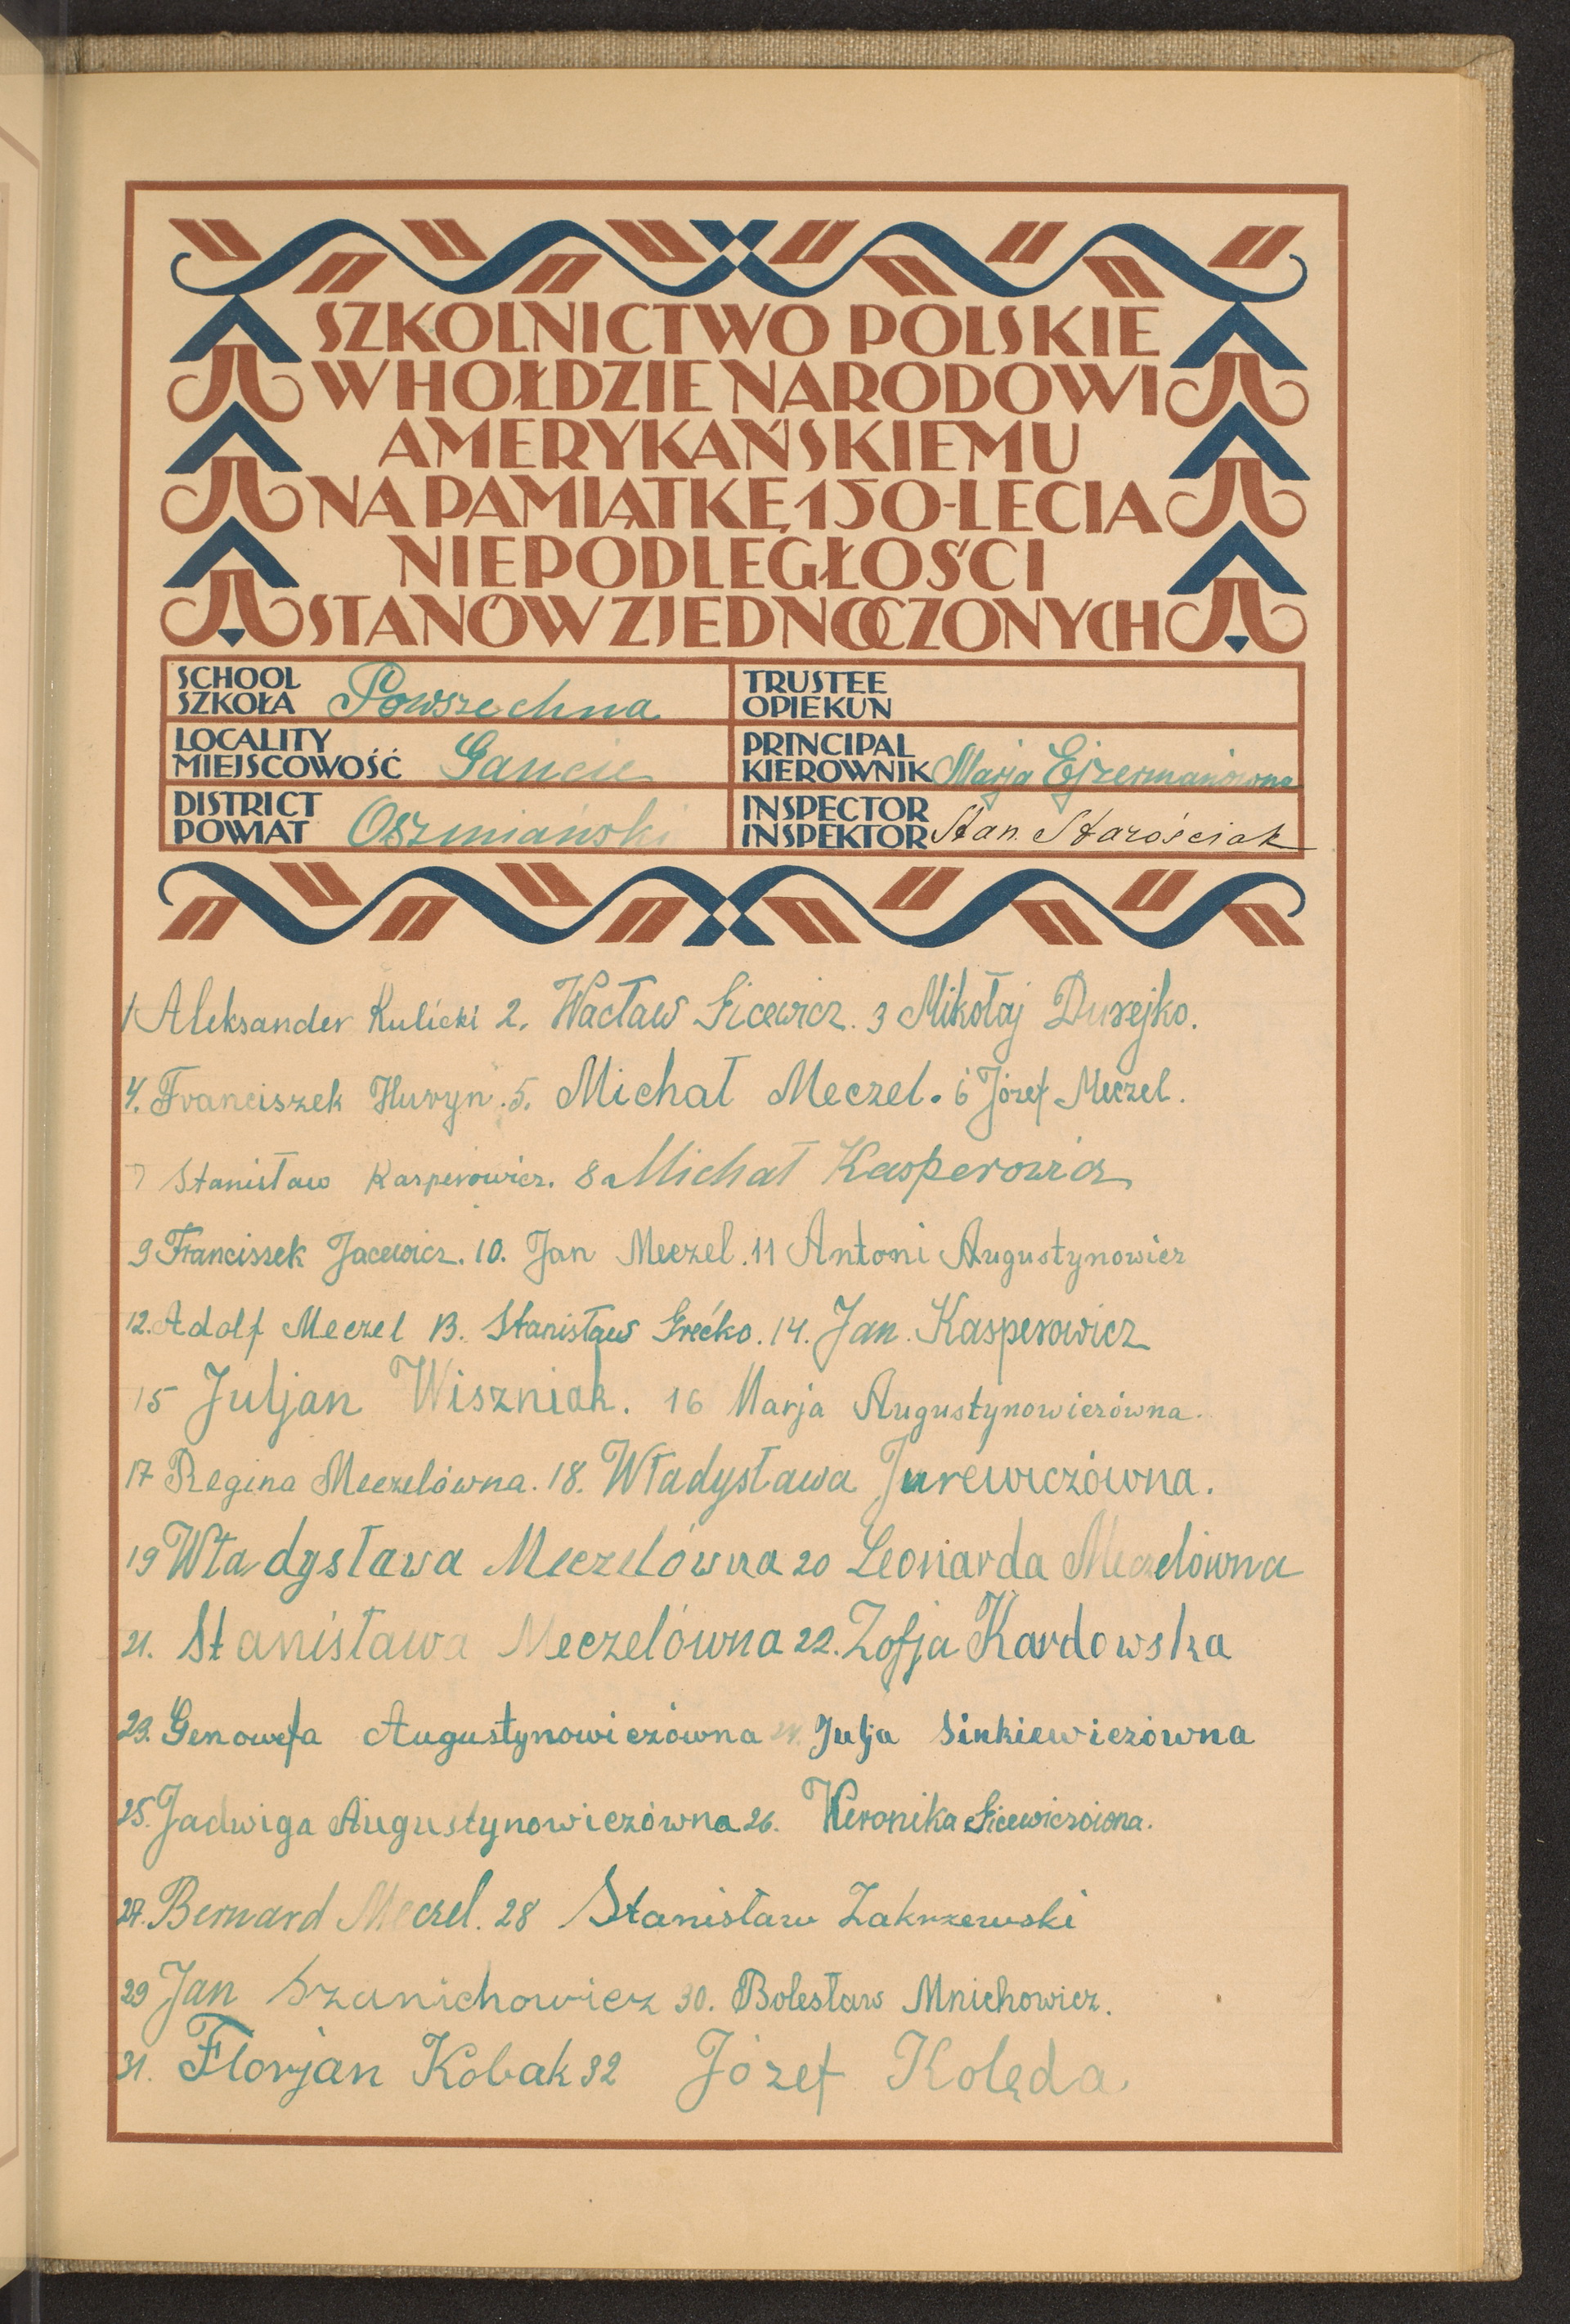 SZKOLNICTWO POLSKIE
W HOŁDZIE NARODOWI
AMERYKAŃSKIEMU
NA PAMIĄTKĘ 150-LECIA
NIEPODLEGŁOŚCI
STANÓW ZJEDNOCZONYCH
SCHOOL
SZKOŁA Powszechna
TRUSTEE
OPIEKUN
LOCALITY
MIEJSCOWOŚĆ Gaucie
PRINCIPAL
KIEROWNIK Marja Ejzermanówna
DISTRICT
POWIAT Oszmiański
INSPECTOR
INSPEKTOR Stan. Starościak
1 Aleksander Kulicki 2. Wacław Sicewicz. 3 Mikołaj Durejko.
4. Franciszek Huryn. 5. Michał Meczel. 6 Józef Meczel.
7 Stanisław Kasperowicz. 8 Michał Kasperowicz
9 Franciszek Jacewicz. 10. Jan Meczel. 11 Antoni Augustynowicz
12. Adolf Meczel 13. Stanisław Grećko. 14. Jan Kasperowicz
15 Juljan Wiszniak. 16 Marja Augustynowiczówna.
17 Regina Meczelówna. 18. Władysława Jurewiczówna.
19 Władysława Meczelówna 20 Leonarda Meczelówna
21. Stanisława Meczelówna 22. Zofja Kardowska
23. Genowefa Augustynowiczówna 24. Julja Sinkiewiczówna
25. Jadwiga Augustynowiczówna 26. Weronika Sicewiczówna.
27. Bernard Meczel. 28 Stanisław Zakrzewski
29 Jan Szanichowicz 30. Bolesław Mnichowicz.
31. Florjan Kobak 32 Józef Kolęda